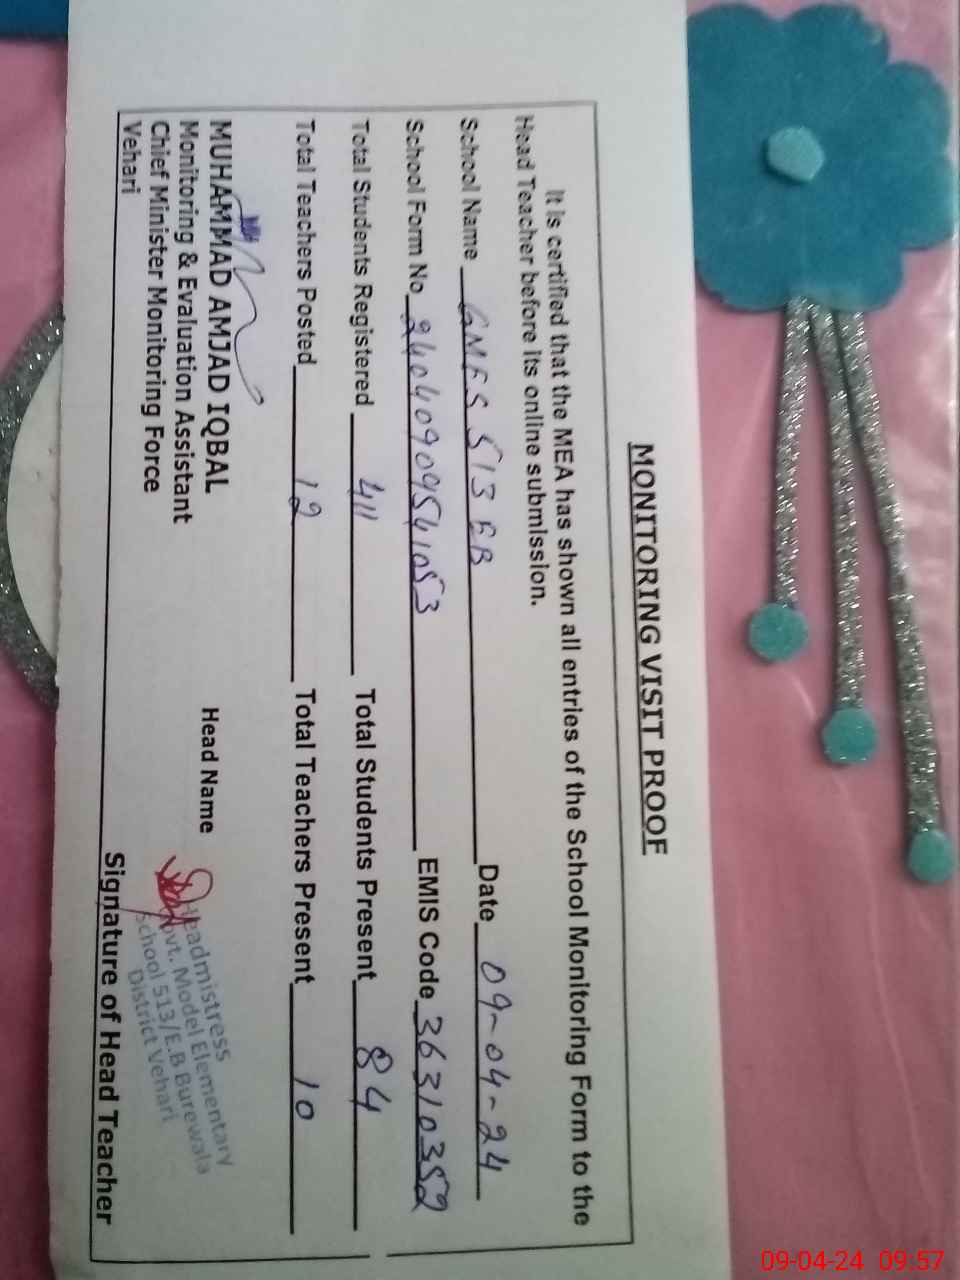 MONITORING VISIT PROOF
It is certified that the MEA has shown all entries of the School Monitoring Form to the
Head Teacher before its online submission.
School Name GMES 513 EB Date 09-04-24
School Form No 24040909541053 EMIS Code 36310352
Total Students Registered 411 Total Students Present 84
Total Teachers Posted 12 Total Teachers Present 10
MUHAMMAD AMJAD IQBAL
Monitoring & Evaluation Assistant
Chief Minister Monitoring Force
Vehari
Head Name
Headmistress
Govt. Model Elementary
School 513/E.B Burewala
District Vehari
Signature of Head Teacher
09-04-24 09:57